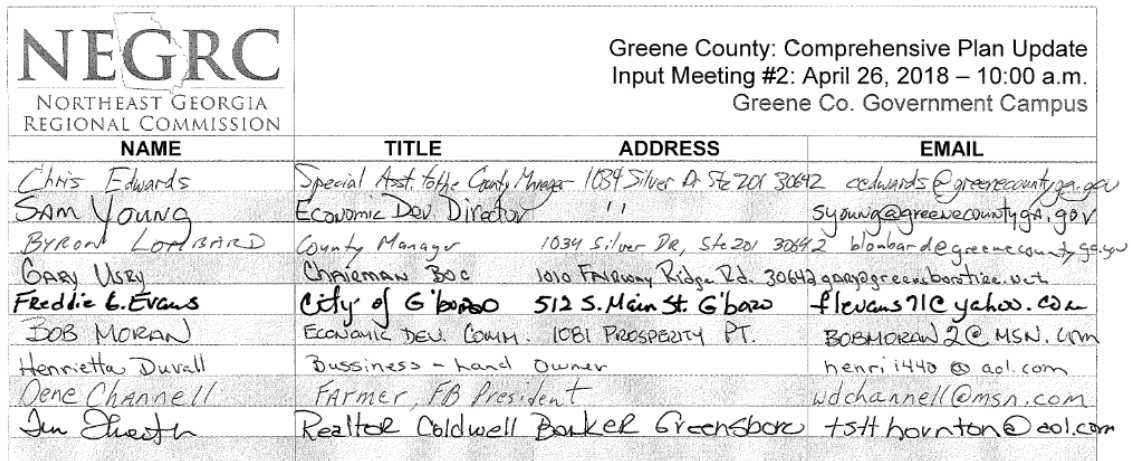 NEGRC
NORTHEAST GEORGIA
REGIONAL COMMISSION
Greene County: Comprehensive Plan Update
Input Meeting #2: April 26, 2018 – 10:00 a.m.
Greene Co. Government Campus
NAME TITLE ADDRESS EMAIL
Chris Edwards Special Asst. to the County Manager 1034 Silver Dr Ste 201 30642 cedwards@greenecountyga.gov
SAM YOUNG Economic Dev. Director '' syoung@greenecountyGA.gov
BYRON LOMBARD County Manager 1034 Silver DR, Ste 201 30642 blombard@greenecountyga.gov
GARY USRY CHAIRMAN BOC 1010 FAIRWAY Ridge Rd. 30642 gary@greensborotire.net
Freddie L. Evans City of G'boro 512 S. Main St. G'boro flevans71@yahoo.com
BOB MORAN ECONOMIC DEV. COMM. 1081 PROSPERITY PT. BOBMORAN2@MSN.COM
Henrietta Duvall Bussiness - Land Owner henri1440@aol.com
Dene Channell FArmer, FB President wdchannell@msn.com
Realtor Coldwell Banker Greensboro tstthornton@aol.com